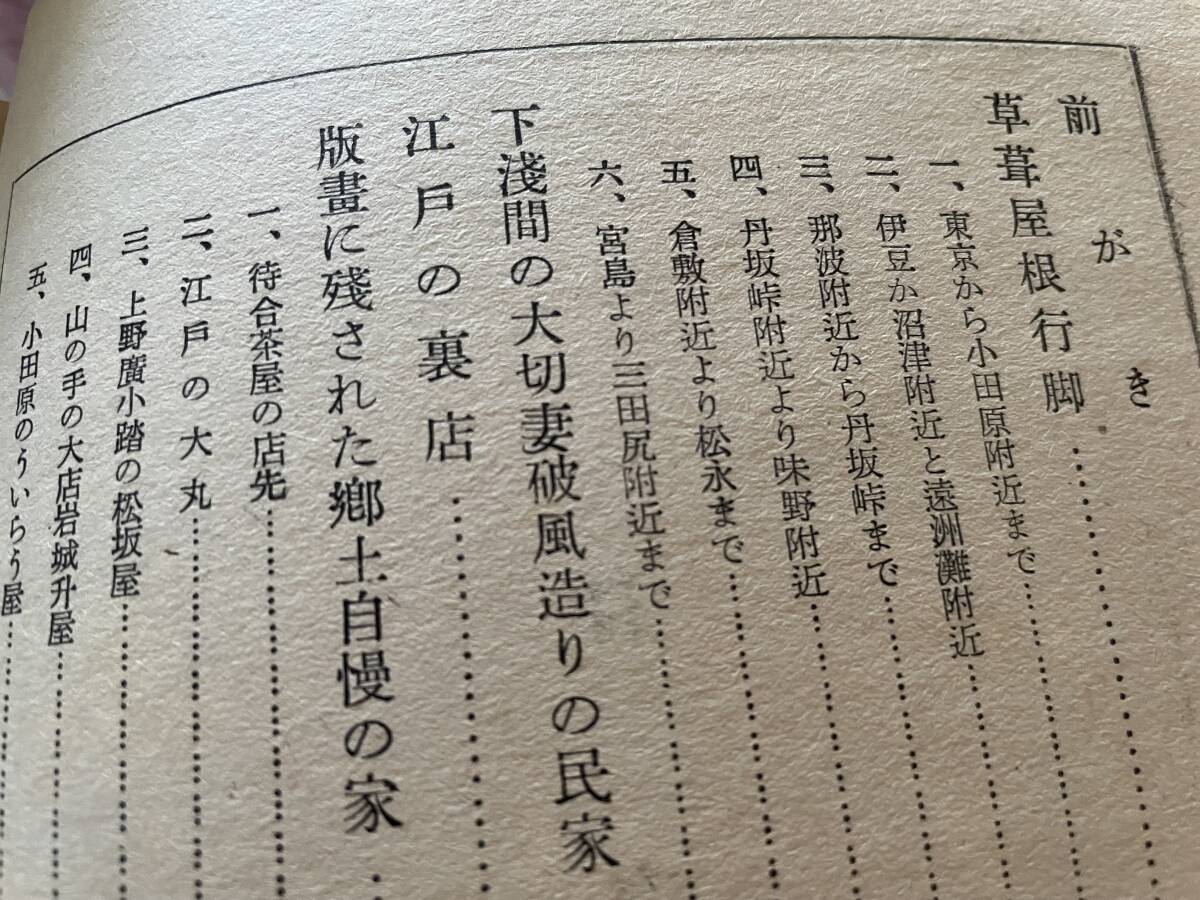 前がき
草葺屋根行脚……………
一、東京から小田原附近まで……………
二、伊豆か沼津附近と遠洲灘附近……………
三、那波附近から丹坂峠まで……………
四、丹坂峠附近より味野附近……………
五、倉敷附近より松永まで……………
六、宮島より三田尻附近まで……………
下淺間の大切妻破風造りの民家
江戸の裏店……………
版畫に殘された鄕土自慢の家…
一、待合茶屋の店先……………
二、江戸の大丸……………
三、上野廣小踏の松坂屋……………
四、山の手の大店岩城升屋……………
五、小田原のういらう屋……………